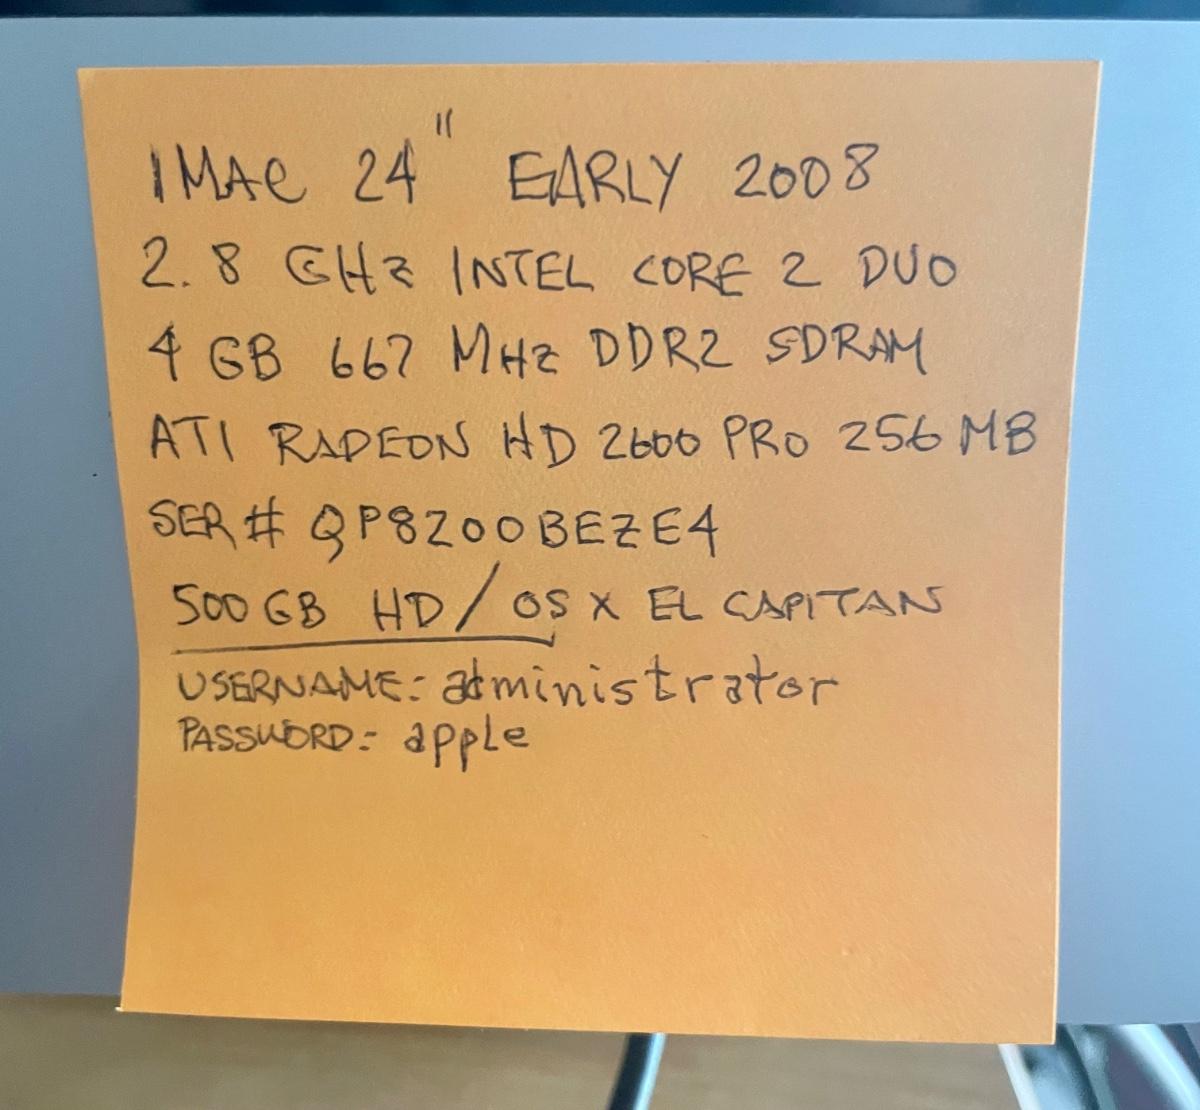 IMAC 24" EARLY 2008
2.8 GHz INTEL CORE 2 DUO
4 GB 667 MHz DDR2 SDRAM
ATI RADEON HD 2600 PRO 256 MB
SER# QP8200BEZE4
500 GB HD / OS X EL CAPITAN
USERNAME: administrator
PASSWORD: apple